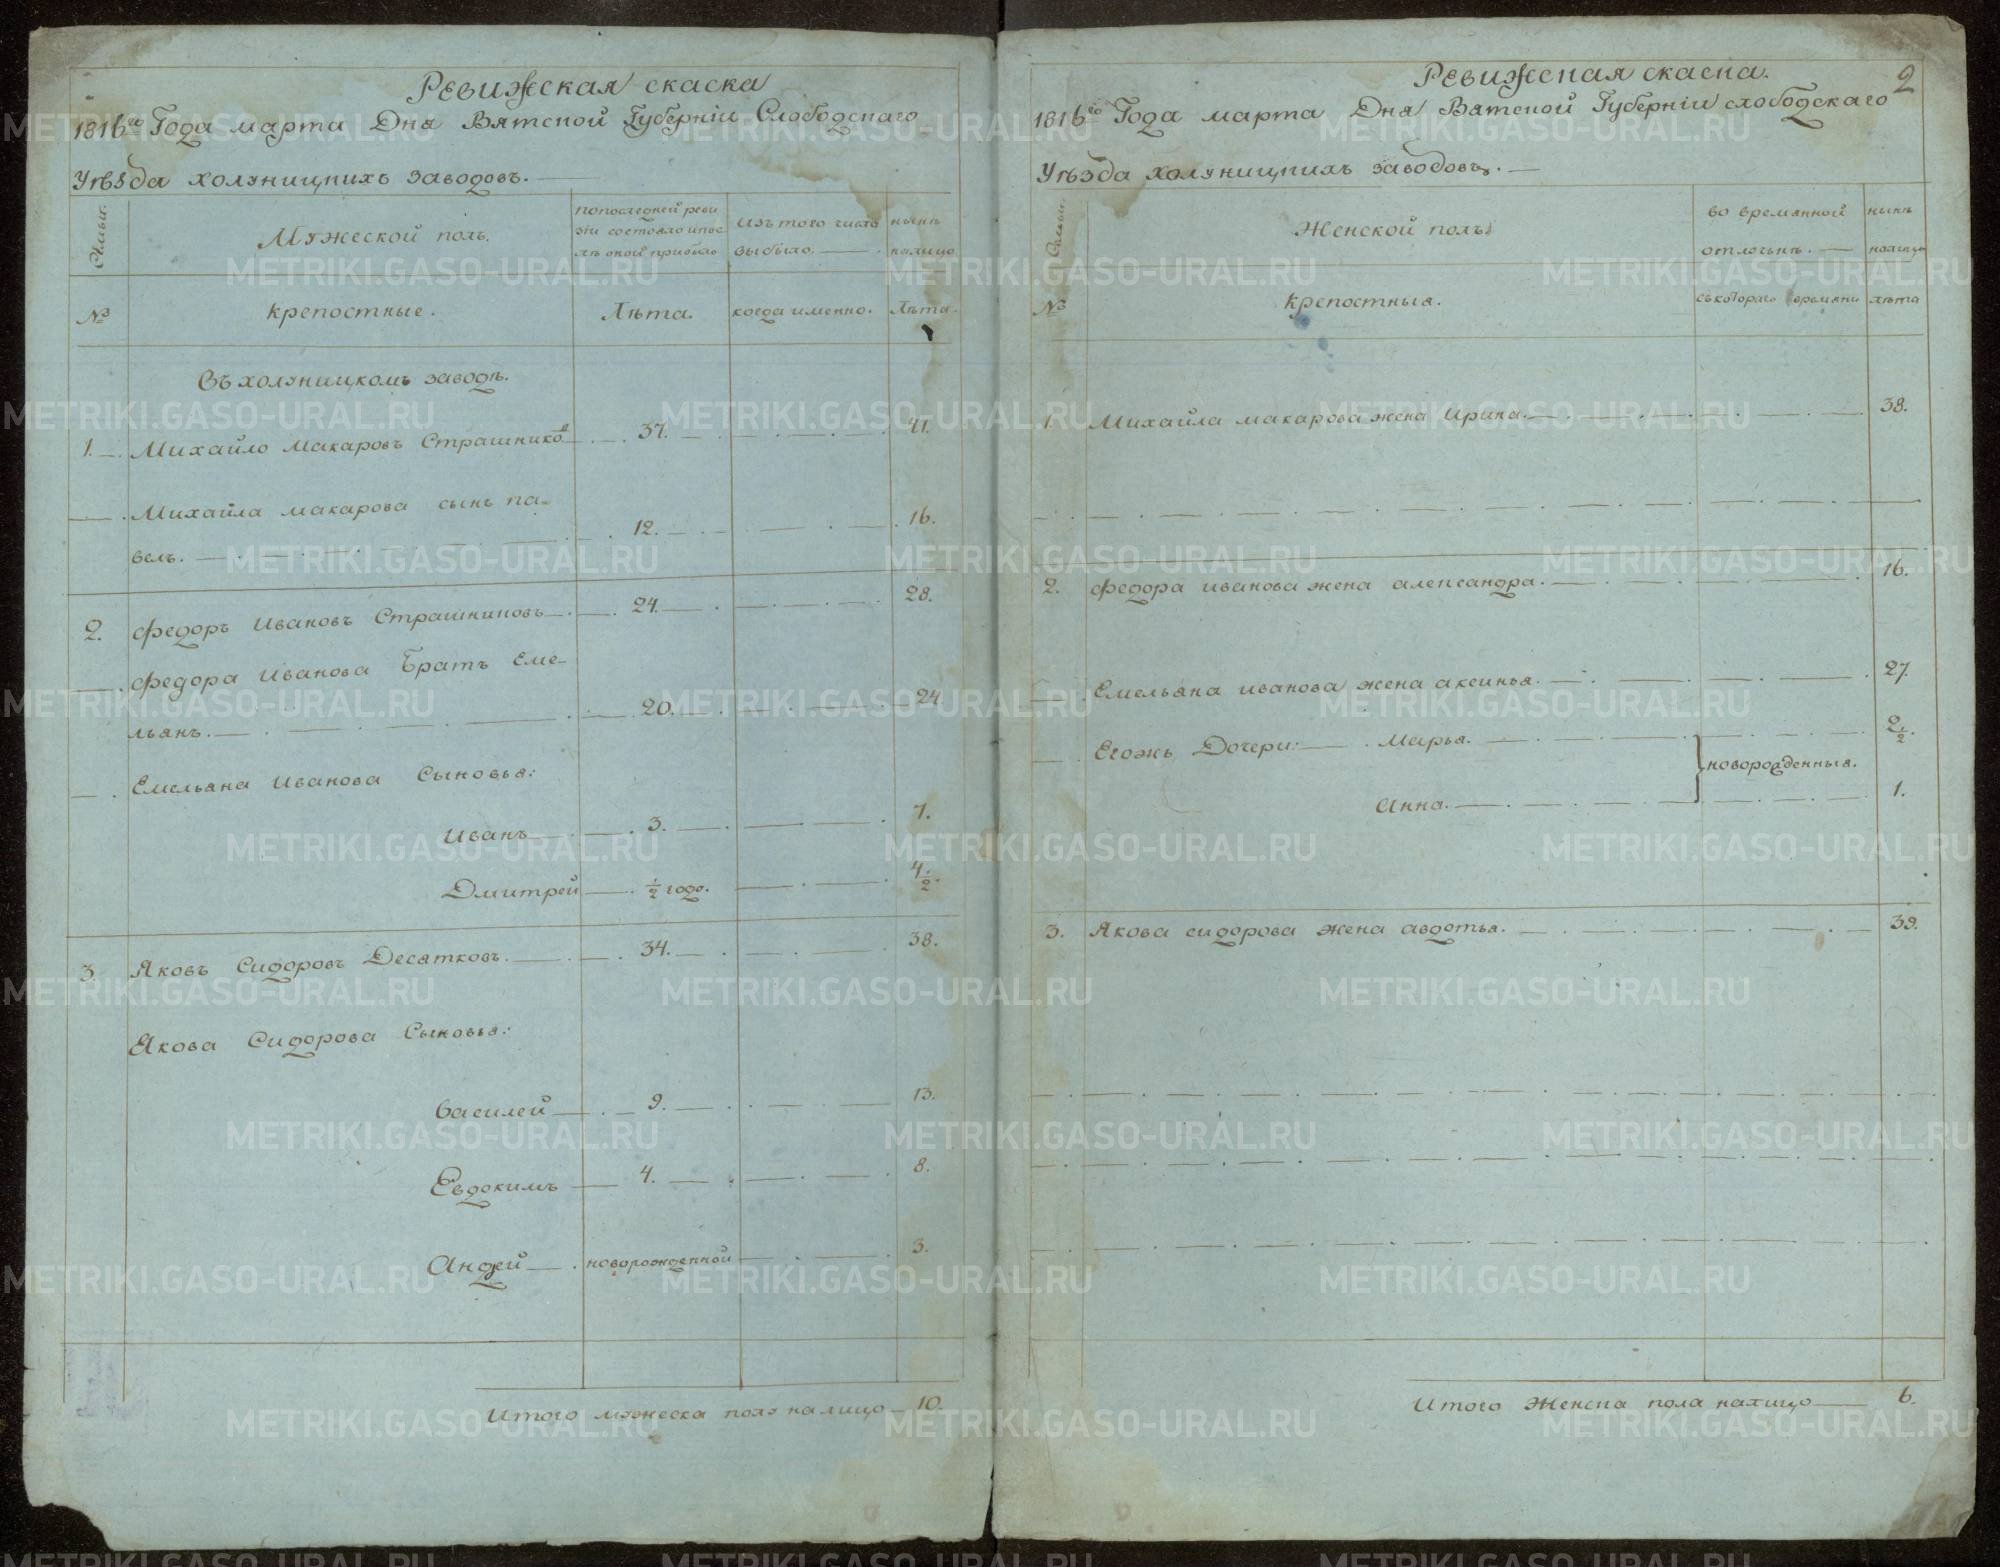 Ревижская скаска
1816го Года марта Дня Вятской Губерніи Слободскаго
Уѣзда холуницкихъ заводовъ.
Мужеской полъ.
по последней реви
зіи состояло и пос
лѣ оной прибыло
изъ того числа
выбыло.
нынѣ
налицо
№
крепостные.
Лѣта.
когда именно.
Лѣта.
Въ холуницкомъ заводѣ.
1. Михайло Макаровъ Страшниковъ 37. 41.
Михайла макарова сынъ па-
велъ. 12. 16.
2. Федоръ Ивановъ Страшниковъ 24. 28.
Федора Иванова Братъ Еме-
льянъ. 20. 24
Емельяна Иванова Сыновья:
Иванъ 3. 7.
Дмитрей ½ года. 4½.
3. Яковъ Сидоровъ Десятковъ. 34. 38.
Якова Сидорова Сыновья:
Василей 9. 13.
Евдокимъ 4. 8.
Андрей новорожденной 3.
Итого мужеска полу налицо 10.
2
Ревижская скаска.
1816го Года марта Дня Вятской Губерніи слободскаго
Уѣзда холуницкихъ заводовъ.
Женской полъ
во времянной
отлучкѣ.
нынѣ
налицо
№
крепостныя.
съ котораго времяни
лѣта
1. Михайла макарова жена Ирина. 38.
2. Федора иванова жена александра. 16.
Емельяна иванова жена аксинья. 27.
Егожъ Дочери: Марья. 2½.
новорожденныя.
Анна. 1.
3. Якова сидорова жена авдотья. 39.
Итого Женска пола налицо 6.
METRIKI.GASO-URAL.RU